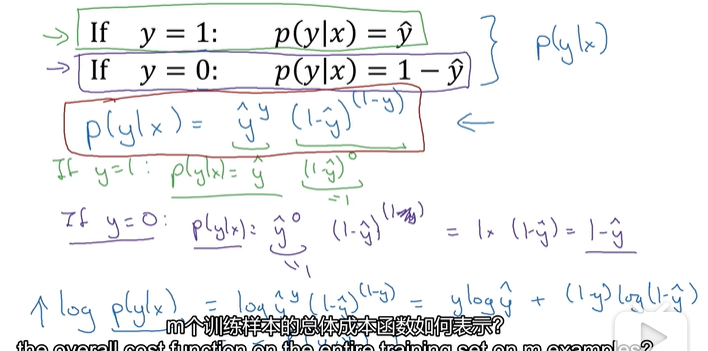 → If y = 1: p(y|x) = ŷ
→ If y = 0: p(y|x) = 1 − ŷ } p(y|x)
p(y|x) = ŷ^y (1-ŷ)^(1-y) ←
If y=1: p(y|x) = ŷ (1-ŷ)^0
=1
If y=0: p(y|x) = ŷ^0 (1-ŷ)^(1-y) = 1× (1-ŷ) = 1-ŷ
=1
↑ log p(y|x) = log ŷ^y (1-ŷ)^(1-y) = y log ŷ + (1-y) log(1-ŷ)
m个训练样本的总体成本函数如何表示?
the overall cost function on the entire training set on m examples?